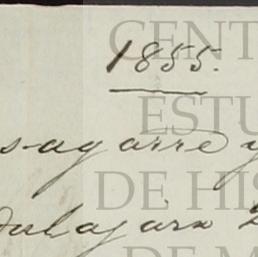 1855.
sagarre y
dalajara 2
CENT
ESTU
DE HIS
DE M